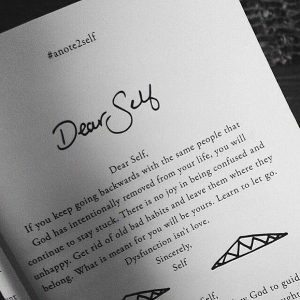 #anote2self
Dear Self
Dear Self,
If you keep going backwards with the same people that
God has intentionally removed from your life, you will
continue to stay stuck. There is no joy in being confused and
unhappy. Get rid of old bad habits and leave them where they
belong. What is meant for you will be yours. Learn to let go.
Dysfunction isn't love.
Sincerely,
Self
God to guide